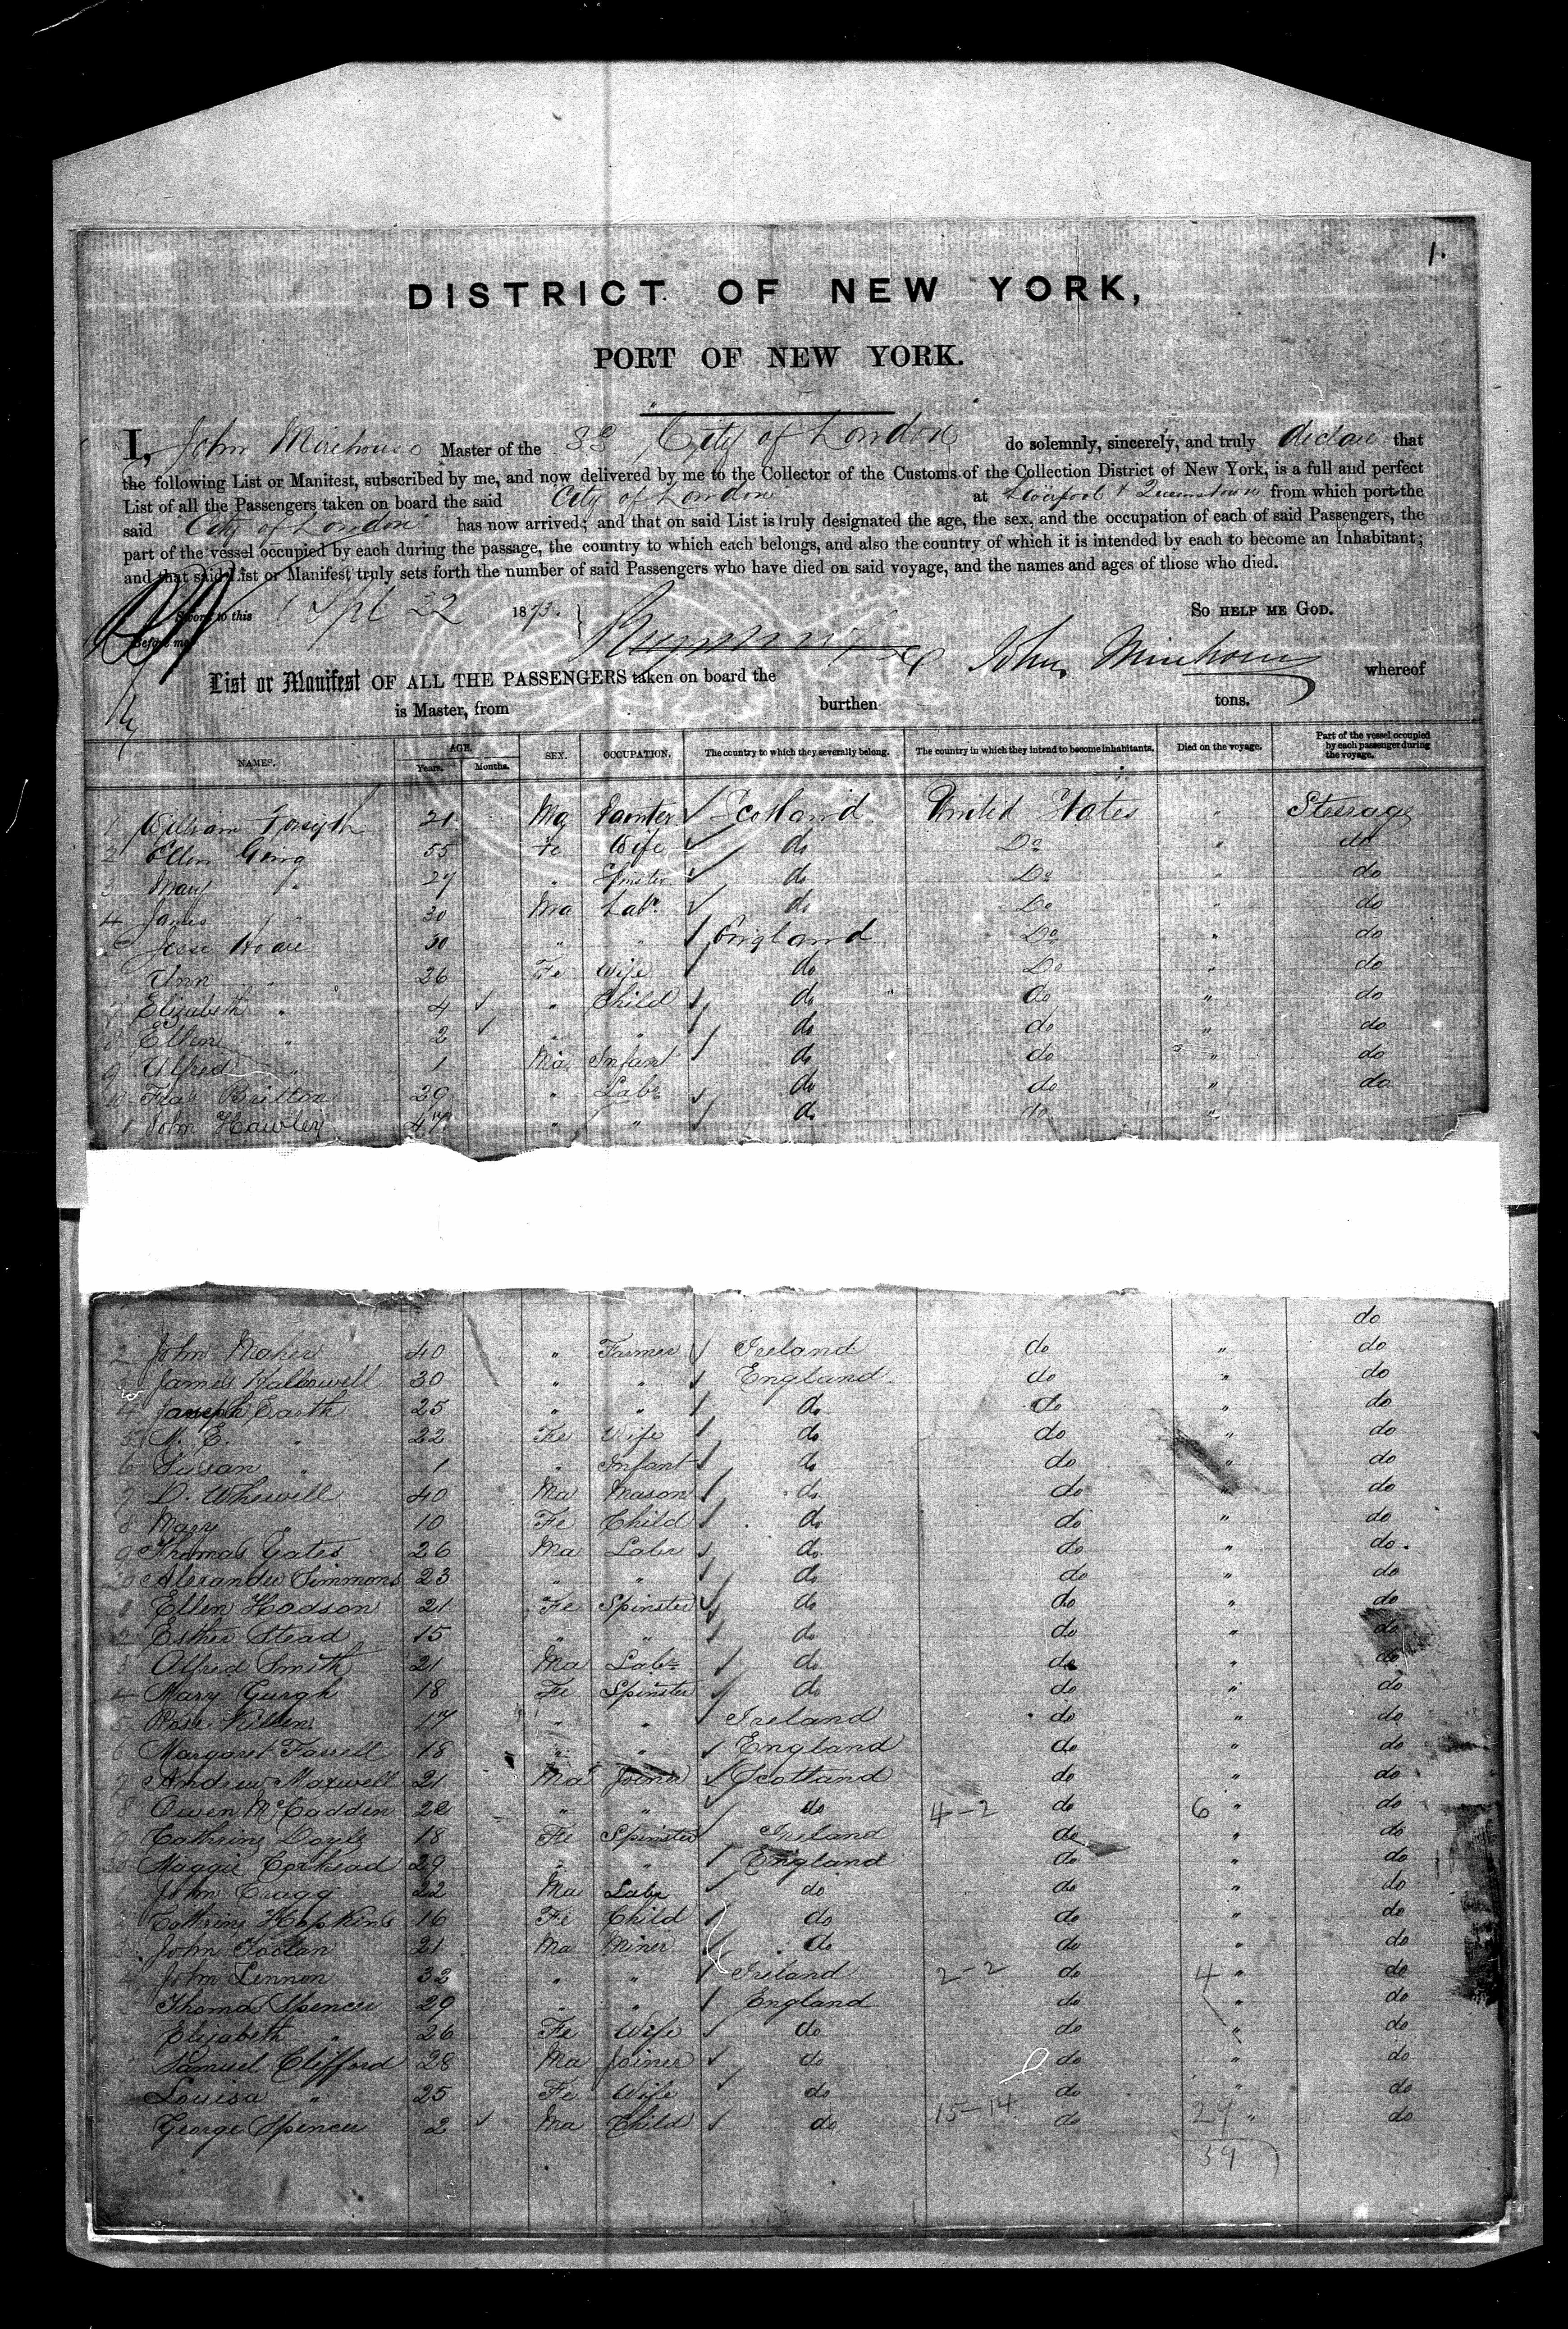 1.
DISTRICT OF NEW YORK,
PORT OF NEW YORK.
I, John Mirehouse Master of the SS City of London do solemnly, sincerely, and truly declare that
the following List or Manifest, subscribed by me, and now delivered by me to the Collector of the Customs of the Collection District of New York, is a full and perfect
List of all the Passengers taken on board the said City of London at Liverpool & Queenstown from which port the
said City of London has now arrived; and that on said List is truly designated the age, the sex, and the occupation of each of said Passengers, the
part of the vessel occupied by each during the passage, the country to which each belongs, and also the country of which it is intended by each to become an Inhabitant;
and that said List or Manifest truly sets forth the number of said Passengers who have died on said voyage, and the names and ages of those who died.
Sworn to this Spt 22 1873. So HELP ME GOD.
Before me
John Mirehouse
List or Manifest OF ALL THE PASSENGERS taken on board the whereof
is Master, from burthen tons.
NAMES. AGE. Years. Months. SEX. OCCUPATION. The country to which they severally belong. The country in which they intend to become inhabitants. Died on the voyage. Part of the vessel occupied by each passenger during the voyage.
1 William Forsyth 21 Ma Painter Scotland United States " Steerage
2 Ellen 55 Fe Wife do Do " do
3 Mary " 27 " Spinster do Do " do
4 James " 30 Ma Labr do Do " do
Jesse Hoare 30 " " England Do " do
Ann " 26 Fe Wife do Do " do
7 Elizabeth " 4 " Child do do " do
8 Ellen " 2 " " do do " do
9 Alfred " 1 Ma Infant do do " do
10 Fras Britton 39 " Labr do do " do
1 John Hawley 47 " " do do "
do
2 John Maher 40 " Farmer Ireland do " do
3 James Hallowell 30 " " England do " do
4 Joseph Earth 25 " " do do " do
5 M. E. " 22 Fe Wife do do " do
6 Susan " 1 " Infant do do " do
7 D. Whewell 40 Ma Mason do do " do
8 Mary " 10 Fe Child do do " do
9 Thomas Yates 26 Ma Labr do do " do
20 Alexander Simmons 23 " " do do " do
1 Ellen Hodson 21 Fe Spinster do do " do
2 Esther Stead 15 " " do do " do
3 Alfred Smith 21 Ma Labr do do " do
4 Mary 18 Fe Spinster do do " do
5 Rose Killen 17 " " Ireland do " do
6 Margaret Farrell 18 " " England do " do
7 Andrew Maxwell 21 Ma Joiner Scotland do " do
8 Owen McCadden 22 " " do 4-2 do 6 " do
9 Cathrine Doyle 18 Fe Spinster Ireland do " do
30 Maggie Corkead 29 " " England do " do
John Cragg 22 Ma Labr do do " do
2 Cathrine Hopkins 16 Fe Child do do " do
3 John Toolan 21 Ma Miner do do " do
4 John Lennon 32 " " Ireland 2-2 do 4 " do
Thomas Spencer 29 " " England do " do
Elizabeth " 26 Fe Wife do do " do
Samuel Clifford 28 Ma Joiner do do " do
Louisa " 25 Fe Wife do do " do
George Spencer 2 Ma Child do 15-14 do 29 " do
39